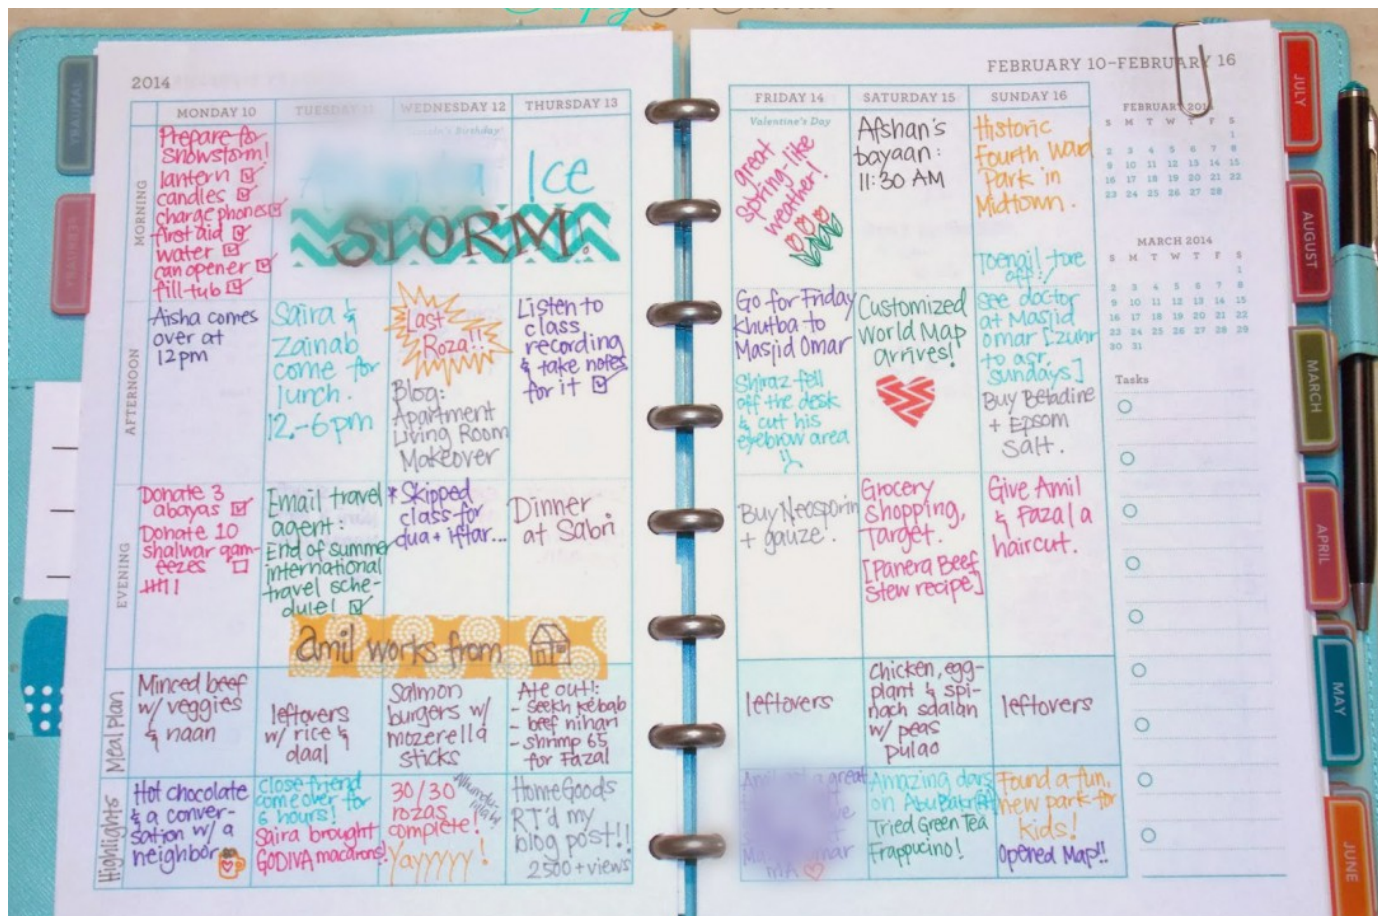 Simply
2014
MONDAY 10
TUESDAY 11
WEDNESDAY 12
THURSDAY 13
MORNING
Prepare for
Snowstorm!
lantern
candles
charge phones
first aid
water
can opener
fill tub
Birthday
Ice
STORM!
AFTERNOON
Aisha comes
over at
12pm
Saira &
Zainab
come for
lunch.
12-6pm
Last
Roza!!
Blog:
Apartment
Living Room
Makeover
Listen to
class
recording
& take notes
for it
EVENING
Donate 3
abayas
Donate 10
shalwar qam-
eezes
Email travel
agent:
End of summer
international
travel sche-
dule!
* Skipped
class for
dua + iftar...
Dinner
at Sabri
Amil works from
Meal plan
Minced beef
w/ veggies
& naan
leftovers
w/ rice &
daal
Salmon
burgers w/
mozerella
sticks
Ate out!:
- seekh kebab
- beef nihari
- shrimp 65
for Fazal
Highlights
Hot chocolate
& a conver-
sation w/ a
neighbor
Close friend
come over for
6 hours!
Saira brought
GODIVA macarons!
30/30
rozas
complete!
Alhumdu-
lillah!
Yayyyyy!
HomeGoods
RT'd my
blog post!!
2500+ views
FEBRUARY 10–FEBRUARY 16
FRIDAY 14
SATURDAY 15
SUNDAY 16
Valentine's Day
great
spring-like
weather!
Afshan's
bayaan:
11:30 AM
Historic
Fourth Ward
Park in
Midtown.
Toenail tore
off!
Go for Friday
Khutba to
Masjid Omar
Shiraz fell
off the desk
& cut his
eyebrow area
Customized
World Map
arrives!
See doctor
at Masjid
Omar [zuhr
to asr,
sundays]
Buy Betadine
+ Epsom
Salt.
Buy Neosporin
+ gauze.
Grocery
shopping,
Target.
[Panera Beef
Stew recipe]
Give Amil
& Fazal a
haircut.
leftovers
Chicken, egg-
plant & spi-
nach saalan
w/ peas
pulao
leftovers
great
Amazing dars
on AbuBakr
Tried Green Tea
Frappucino!
Found a fun,
new park for
kids!
Opened Map!!
FEBRUARY 2014
S M T W T F S
1
2 3 4 5 6 7 8
9 10 11 12 13 14 15
16 17 18 19 20 21 22
23 24 25 26 27 28
MARCH 2014
S M T W T F S
1
2 3 4 5 6 7 8
9 10 11 12 13 14 15
16 17 18 19 20 21 22
23 24 25 26 27 28 29
30 31
Tasks
JULY
AUGUST
MARCH
APRIL
MAY
JUNE